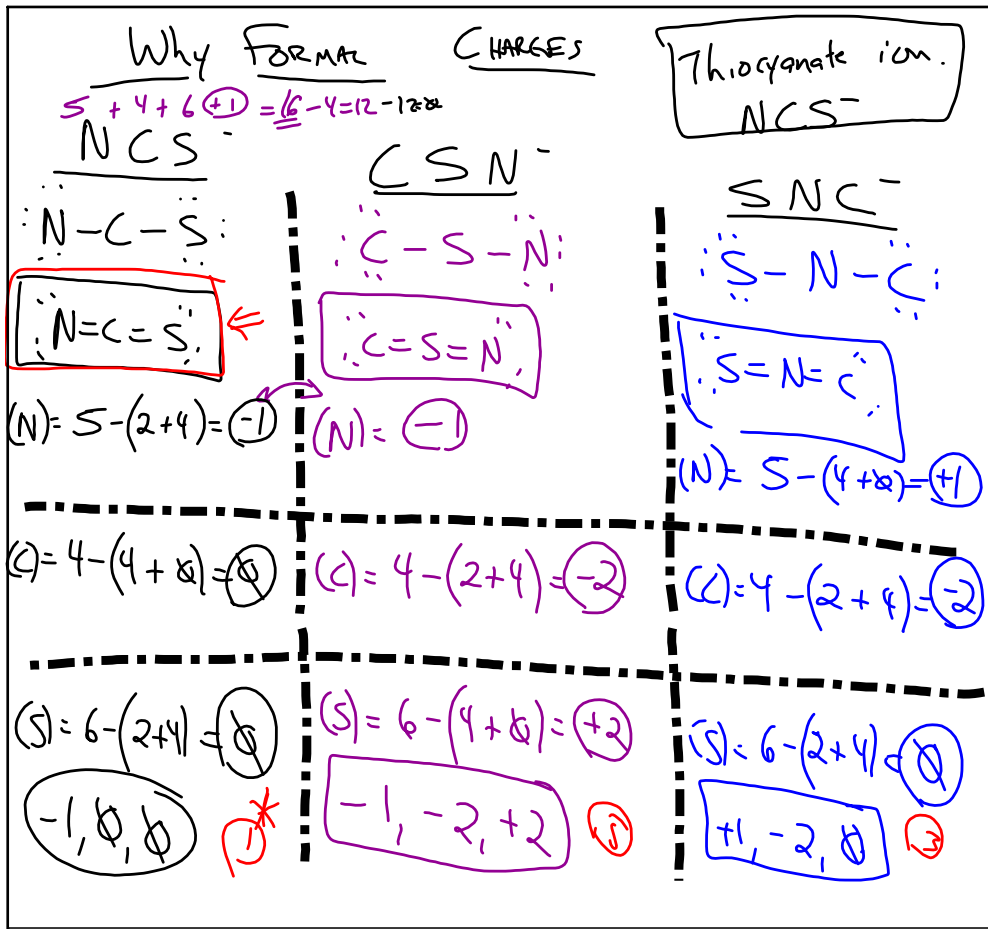 Why FORMAL CHARGES
Thiocyanate ion.
NCS⁻
5 + 4 + 6 +1 = 16 - 4 = 12 - 12 = 0
NCS⁻
:N-C-S:
:N=C=S:
(N) = 5 - (2+4) = -1
(C) = 4 - (4+0) = 0
(S) = 6 - (2+4) = 0
-1, 0, 0
1*
CSN⁻
:C-S-N:
:C=S=N:
(N) = -1
(C) = 4 - (2+4) = -2
(S) = 6 - (4+0) = +2
-1, -2, +2
5
SNC⁻
:S-N-C:
:S=N=C:
(N) = 5 - (4+0) = +1
(C) = 4 - (2+4) = -2
(S) = 6 - (2+4) = 0
+1, -2, 0
3